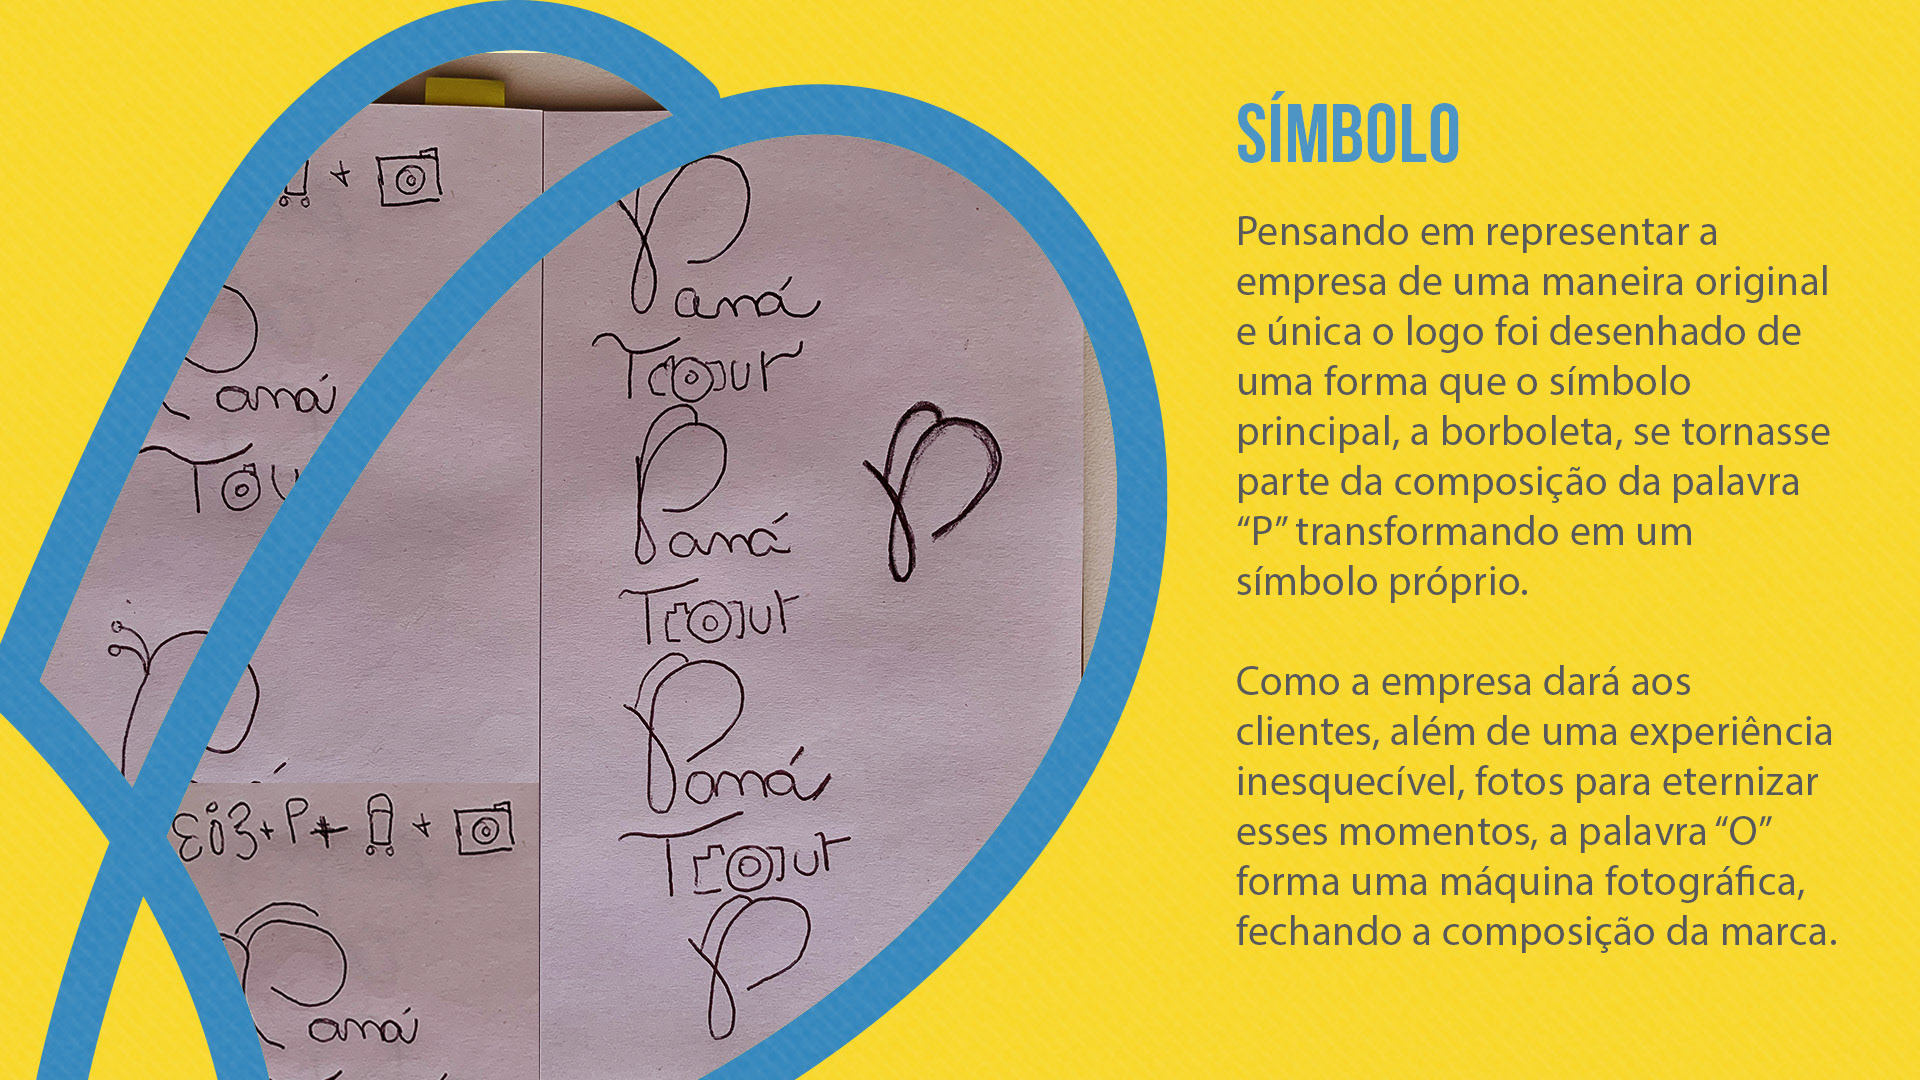 SÍMBOLO
Pensando em representar a
empresa de uma maneira original
e única o logo foi desenhado de
uma forma que o símbolo
principal, a borboleta, se tornasse
parte da composição da palavra
“P” transformando em um
símbolo próprio.
Como a empresa dará aos
clientes, além de uma experiência
inesquecível, fotos para eternizar
esses momentos, a palavra “O”
forma uma máquina fotográfica,
fechando a composição da marca.
+
aná
Tou
P
aná
Tour
Paná
Tour
P
Paná
Tour
P
+ P + +
aná